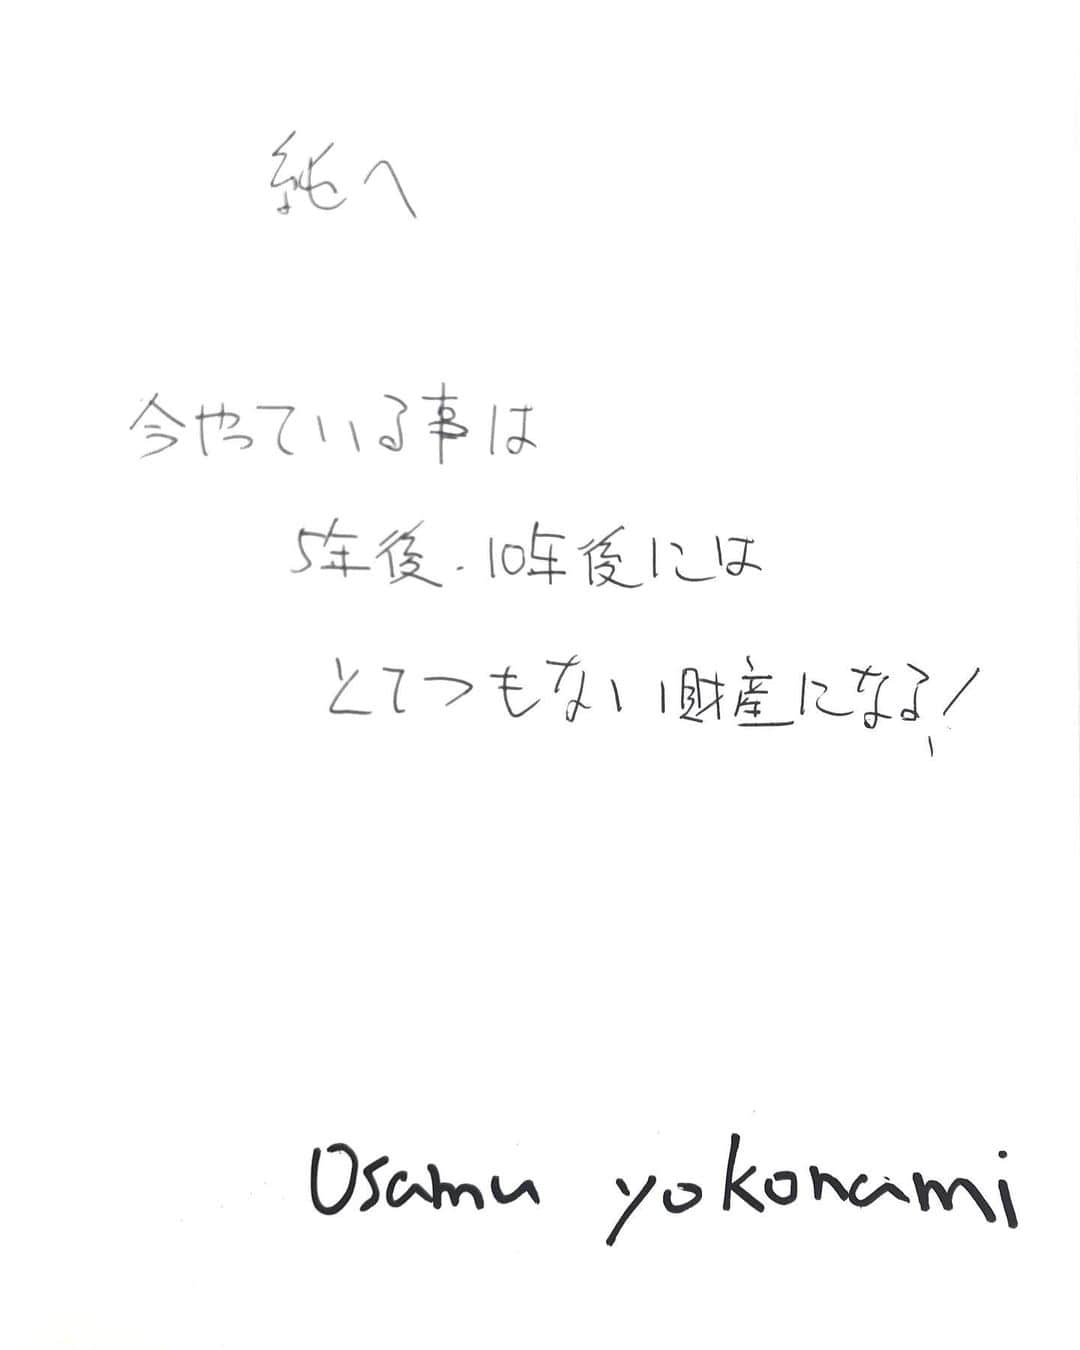 純へ
今やっている事は
5年後.10年後には
とてつもない財産になる!
Osamu yokonami